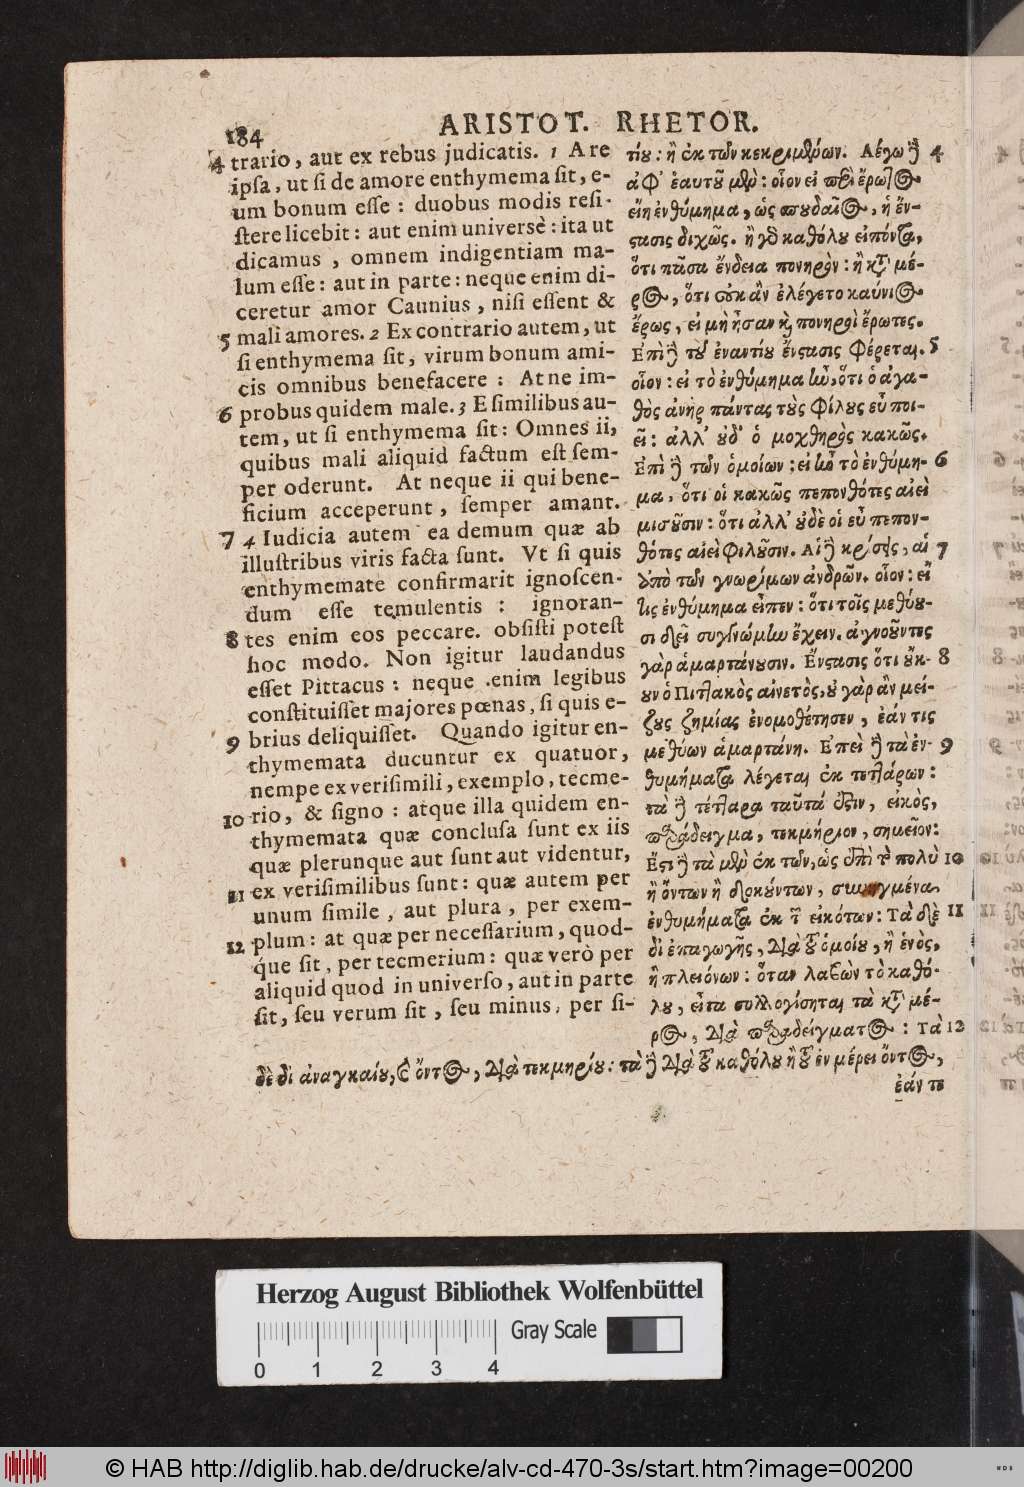 184
ARISTOT. RHETOR.
4 trario, aut ex rebus judicatis. 1 A re
ipsa, ut si de amore enthymema sit, e-
um bonum esse : duobus modis resi-
stere licebit : aut enim universè : ita ut
dicamus , omnem indigentiam ma-
lum esse : aut in parte : neque enim di-
ceretur amor Caunius , nisi essent &
5 mali amores. 2 Ex contrario autem, ut
si enthymema sit, virum bonum ami-
cis omnibus benefacere : At ne im-
probus quidem male. 3 E similibus au-
6 tem, ut si enthymema sit : Omnes ii,
quibus mali aliquid factum est sem-
per oderunt. At neque ii qui bene-
ficium acceperunt , semper amant.
7 4 Iudicia autem ea demum quæ ab
illustribus viris facta sunt. Vt si quis
enthymemate confirmarit ignoscen-
dum esse temulentis : ignoran-
8 tes enim eos peccare. obsisti potest
hoc modo. Non igitur laudandus
esset Pittacus : neque enim legibus
constituisset majores pœnas, si quis e-
9 brius deliquisset. Quando igitur en-
thymemata ducuntur ex quatuor,
nempe ex verisimili, exemplo, tecme-
10 rio, & signo : atque illa quidem en-
thymemata quæ conclusa sunt ex iis
quæ plerunque aut sunt aut videntur,
11 ex verisimilibus sunt : quæ autem per
unum simile , aut plura , per exem-
12 plum : at quæ per necessarium, quod-
que sit, per tecmerium : quæ verò per
aliquid quod in universo, aut in parte
sit, seu verum sit , seu minus, per si-
τίου : ἢ ἐκ τῶν κεκριμένων. Λέγω δὲ 4
ἀφ' ἑαυτοῦ μὲν : οἷον εἰ περὶ ἔρωτος
εἴη ἐνθύμημα, ὡς σπουδαῖος, ἡ ἔν-
στασις διχῶς. ἢ γὸ καθόλου εἰπόντα,
ὅτι πᾶσα ἔνδεια πονηρὸν : ἢ κατὰ μέ-
ρος, ὅτι οὐκ ἂν ἐλέγετο καύνιος
ἔρως, εἰ μὴ ἦσαν καὶ πονηροὶ ἔρωτες.
Επὶ δὲ τοῦ ἐναντίου ἔνστασις φέρεται. 5
οἷον : εἰ τὸ ἐνθύμημα ἦν, ὅτι ὁ ἀγα-
θὸς ἀνὴρ πάντας τοὺς φίλους εὖ ποι-
εῖ : ἀλλ' οὐδ' ὁ μοχθηρὸς κακῶς.
Επὶ δὲ τῶν ὁμοίων : εἰ ἦν τὸ ἐνθύμη- 6
μα, ὅτι οἱ κακῶς πεπονθότες αἰεὶ
μισοῦσιν : ὅτι ἀλλ' οὐδὲ οἱ εὖ πεπον-
θότες αἰεὶ φιλοῦσιν. Αἱ δὲ κρίσεις, αἱ 7
ἀπὸ τῶν γνωρίμων ἀνδρῶν. οἷον : εἴ
τις ἐνθύμημα εἶπεν : ὅτι τοῖς μεθύου-
σι δεῖ συγγνώμην ἔχειν. ἀγνοοῦντες
γὰρ ἁμαρτάνουσιν. Ἔνστασις ὅτι οὔκ- 8
ουν ὁ Πιττακὸς αἰνετὸς, οὐ γὰρ ἂν μεί-
ζους ζημίας ἐνομοθέτησεν , ἐάν τις
μεθύων ἁμαρτάνῃ. Επεὶ δὲ τὰ ἐν- 9
θυμήματα λέγεται ἐκ τεττάρων :
τὰ δὲ τέτταρα ταῦτά ἐστιν, εἰκὸς,
παράδειγμα, τεκμήριον, σημεῖον :
Ἔστι δὲ τὰ μὲν ἐκ τῶν, ὡς ἐπὶ τὸ πολὺ 10
ἢ ὄντων ἢ δοκούντων, συνηγμένα,
ἐνθυμήματα ἐκ τῶν εἰκότων : Τὰ δὲ 11
δι' ἐπαγωγῆς, διὰ τοῦ ὁμοίου, ἢ ἑνὸς,
ἢ πλειόνων : ὅταν λαβὼν τὸ καθό-
λου, εἶτα συλλογίσηται τὰ κατὰ μέ-
ρος, διὰ παραδείγματος : Τὰ 12
δὲ δι' ἀναγκαίου, καὶ ὄντος, διὰ τεκμηρίου : τὰ δὲ διὰ τοῦ καθόλου ἢ τοῦ ἐν μέρει ὄντος,
ἐάν τε
Herzog August Bibliothek Wolfenbüttel
Gray Scale
0 1 2 3 4
© HAB http://diglib.hab.de/drucke/alv-cd-470-3s/start.htm?image=00200